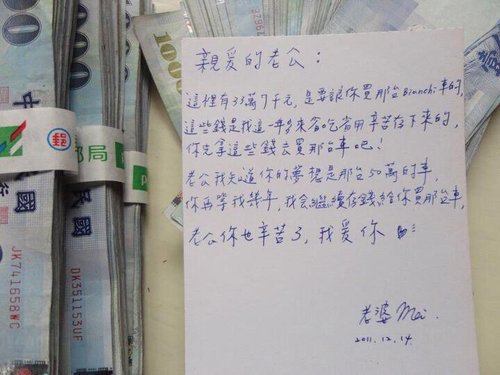 親爱的老公：
這裡有33萬7千元，是要讓你買那台Bianchi車的，
這些錢是我這一年多來省吃省用辛苦存下來的，
你先拿這些錢去買那台車吧！
老公我知道你的夢想是那台50萬的車，
你再等我幾年，我会繼續存錢給你買那台車，
老公你也辛苦了，我爱你
老婆 Mei.
2011.12.14.
1000
中
民國
郵局
JK741658WC
DK351153UF